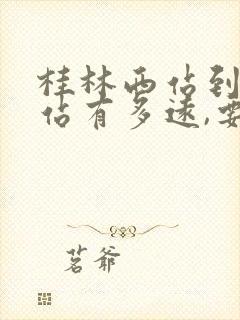 桂林西站到
站有多远,要
茗爷